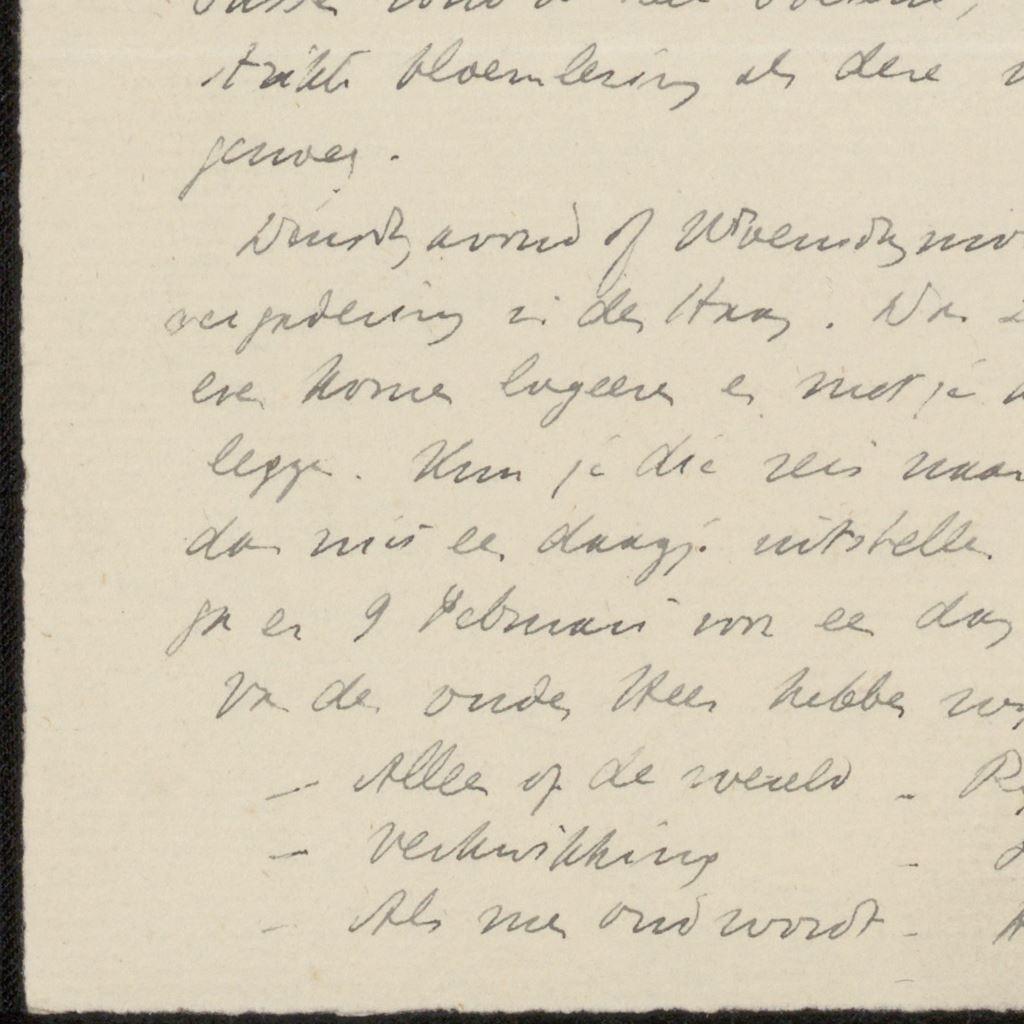 strikte bloemlezing als deze
genoeg.
Dinsdagavond of Woensdagmor
vergadering in den Haag. Dan
even komen logeeren en met je
leggen. Kun je die reis naar
dan niet een daagje uitstellen
ga en 9 Februari voor een dag
Van den ouden Heer hebben
– Alleen op de wereld –
– Verkwikking –
– Als men oud wordt –